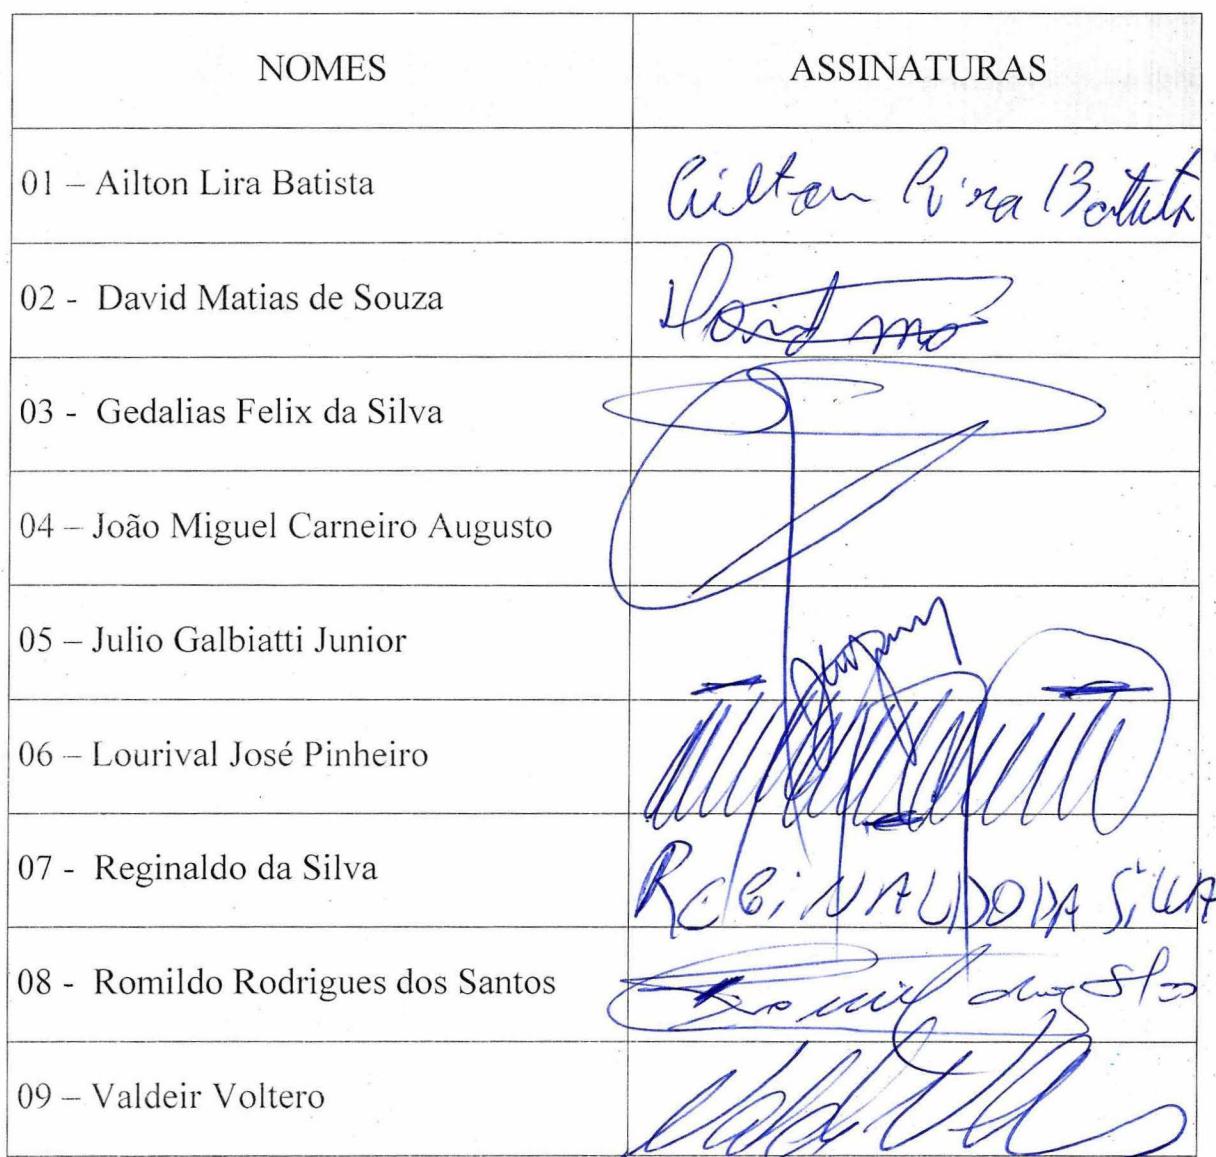 NOMES ASSINATURAS
01 – Ailton Lira Batista Ailton Lira Batista
02 - David Matias de Souza David
03 - Gedalias Felix da Silva
04 – João Miguel Carneiro Augusto
05 – Julio Galbiatti Junior
06 – Lourival José Pinheiro
07 - Reginaldo da Silva REGiNALDO DA SiLVA
08 - Romildo Rodrigues dos Santos
09 – Valdeir Voltero